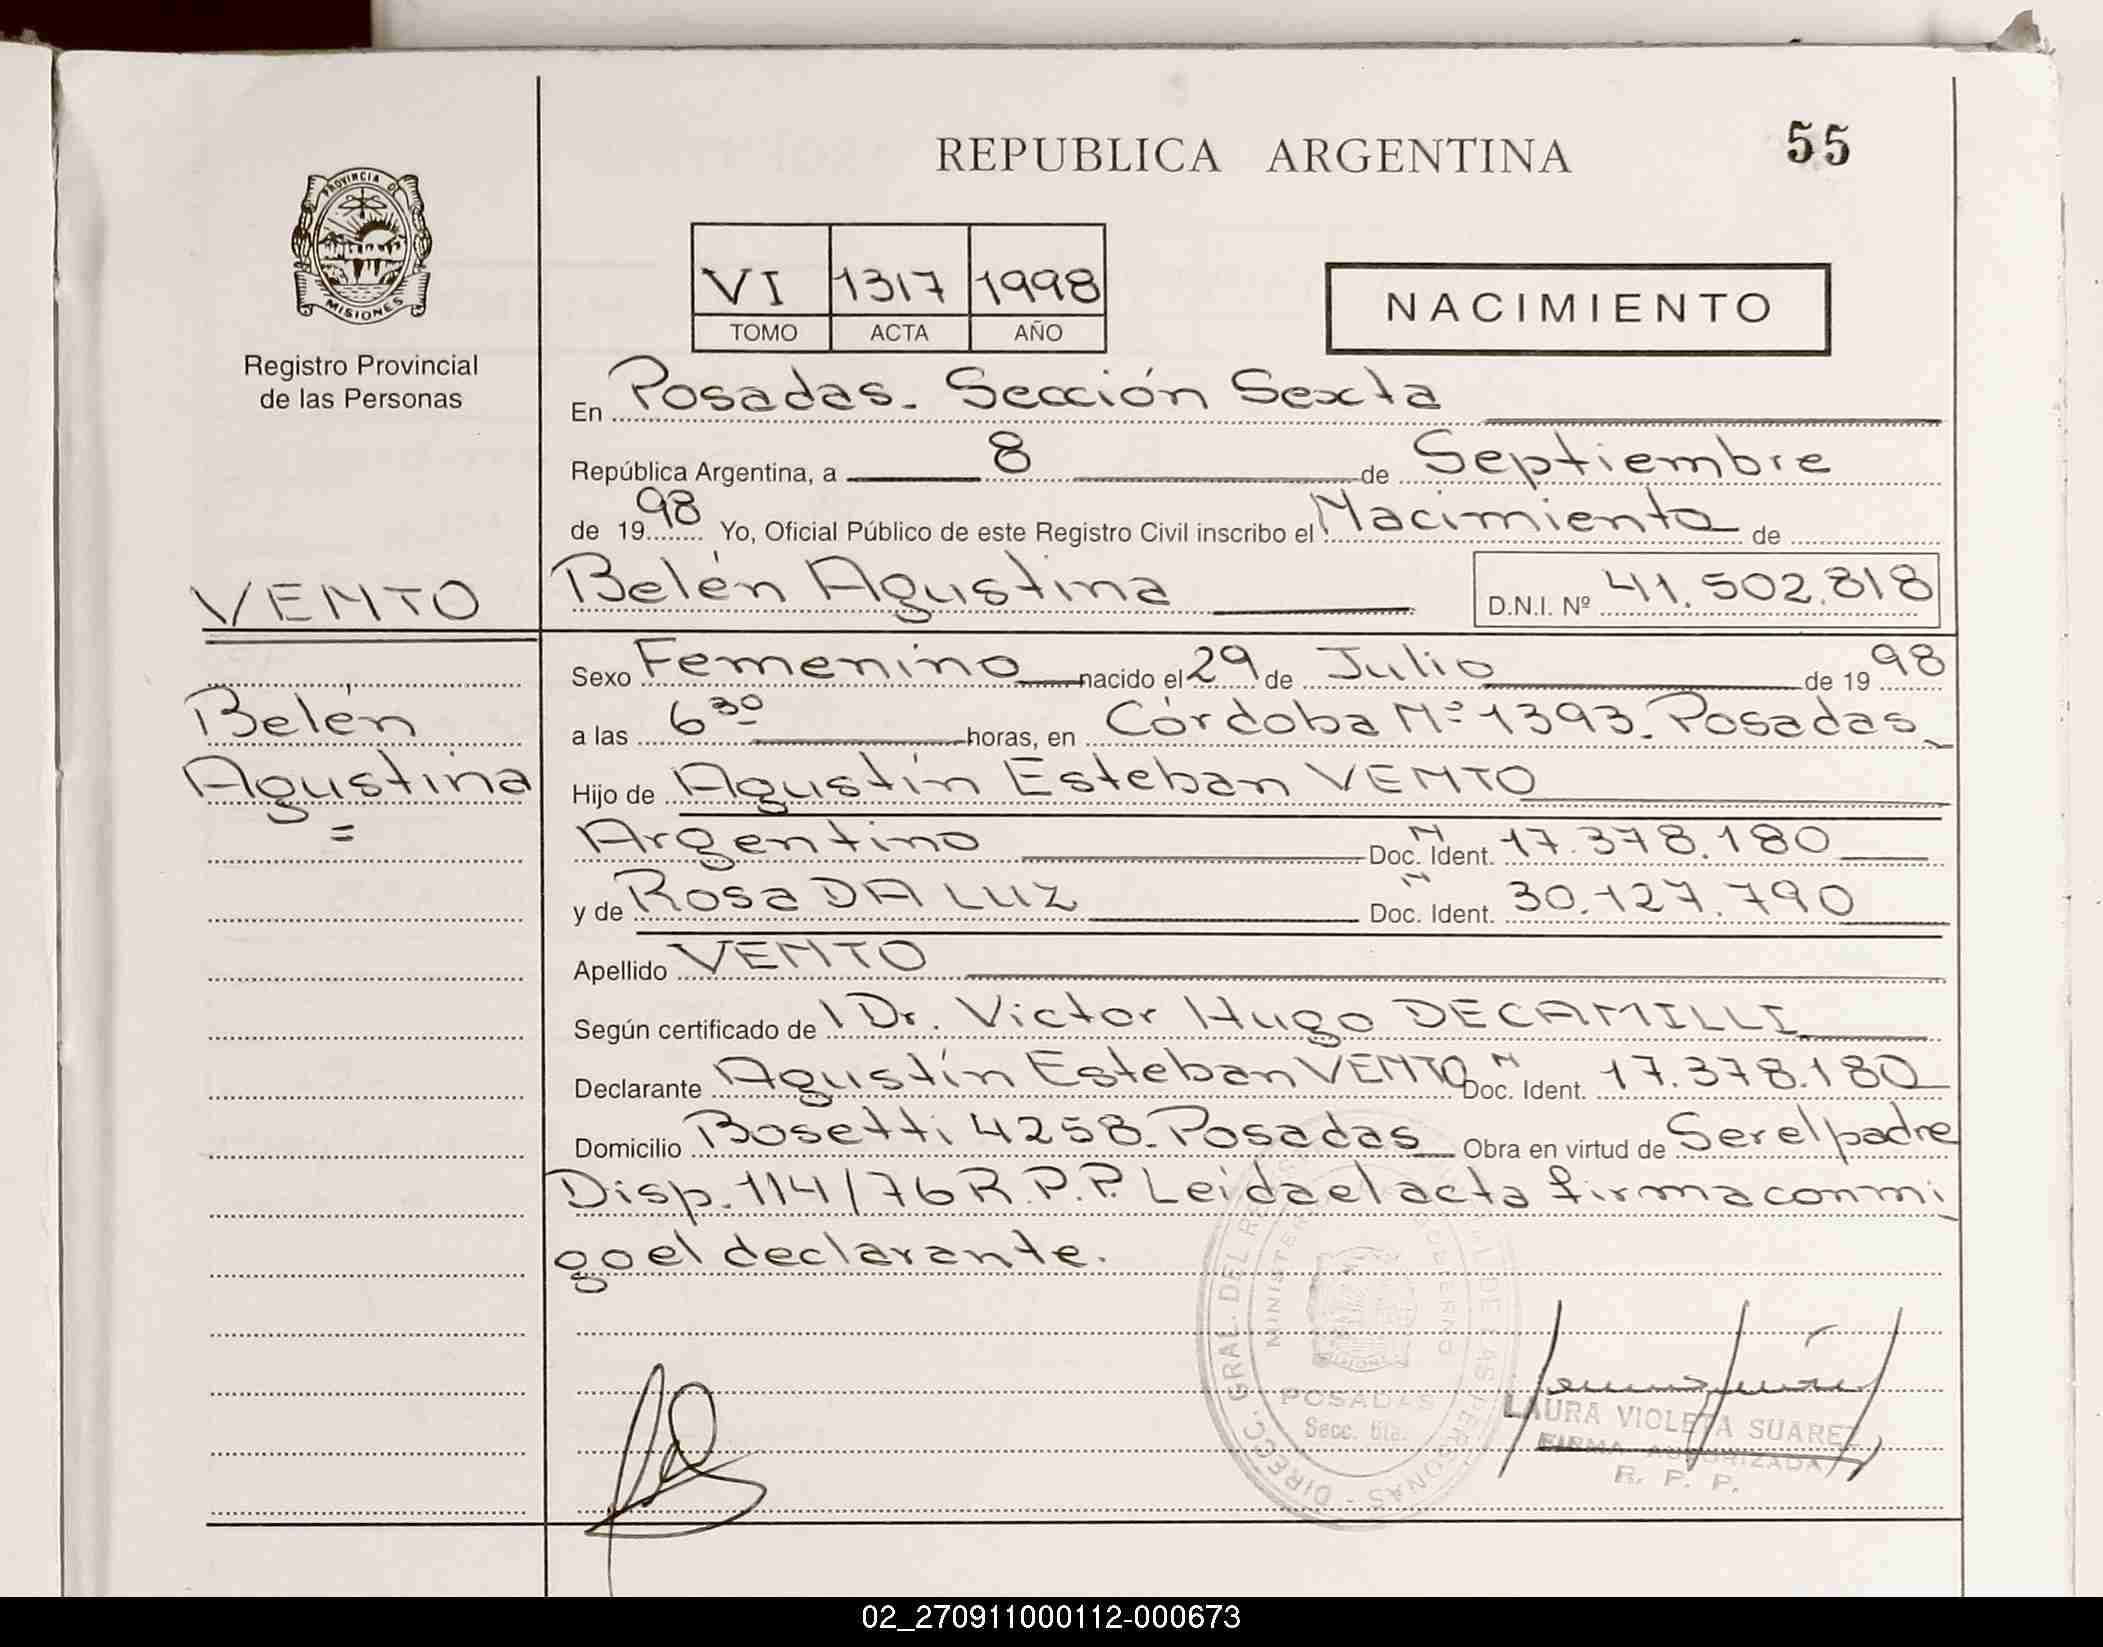 REPUBLICA ARGENTINA
55
PROVINCIA DE
MISIONES
Registro Provincial
de las Personas
VI 1317 1998
TOMO ACTA AÑO
NACIMIENTO
En Posadas. Sección Sexta
República Argentina, a 8 de Septiembre
de 1998 Yo, Oficial Público de este Registro Civil inscribo el Nacimiento de
VENTO
Belén Agustina D.N.I. Nº 41.502.818
Belén
Agustina
=
Sexo Femenino nacido el 29 de Julio de 1998
a las 6 30 horas, en Córdoba Nº 1393. Posadas.
Hijo de Agustín Esteban VENTO
Argentino Doc. N Ident. 17.378.180
y de Rosa DA LUZ Doc. N Ident. 30.127.790
Apellido VENTO
Según certificado de 1 Dr. Victor Hugo DECAMILLI
Declarante Agustín Esteban VENTO N Doc. Ident. 17.378.180
Domicilio Bosetti 4258. Posadas Obra en virtud de Ser el padre
Disp. 114/76 R.P.P. Leida el acta firma conmi
go el declarante.
DIRECC. GRAL. DEL REGISTRO PROVINCIAL DE LAS PERSONAS -
MINISTERIO DE GOBIERNO
MISIONES
POSADAS
Secc. 6ta.
LAURA VIOLETA SUAREZ
FIRMA AUTORIZADA
R. P. P.
02_270911000112-000673